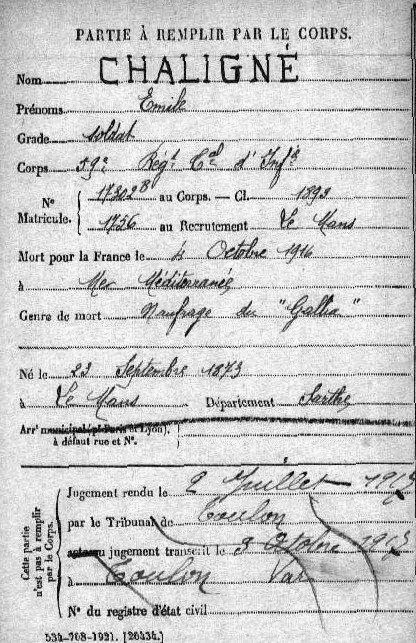 PARTIE À REMPLIR PAR LE CORPS.
Nom CHALIGNÉ
Prénoms Emile
Grade soldat
Corps 59e Régt Cal d'Infie
No Matricule. 17302B au Corps. — Cl. 1893
1756 au Recrutement Le Mans
Mort pour la France le 4 Octobre 1916
à Mer Méditerranée
Genre de mort Naufrage du "Gallia"
Né le 23 Septembre 1873
à Le Mans Département Sarthe
Arrt municipal (pr Paris et Lyon),
à défaut rue et No.
Cette partie n'est pas à remplir par le Corps.
Jugement rendu le 2 Juillet
par le Tribunal de Toulon
acte ou jugement transcrit le 3
à Toulon Var
No du registre d'état civil
534-708-1921. [26434.]